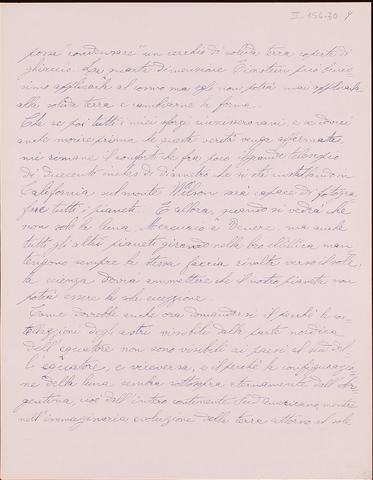 II-156-30 9
possa "condensare" un cerchio di solida terra coperta di
ghiaccio. La quarta dimensione Einstein può benis
simo applicarla al cosmo ma egli non potrà mai applicarla
alla solida terra e cambiarne la forma.
Che se poi tutti i miei sforzi riuscissero vani, e se dovrò
anche morire prima che questa verità venga affermata,
mi rimane il conforto che fra poco il grande telescopio
di duecento inches di diametro che si sta installando in
California sul monte Wilson sarà capace di fotogra
fare tutti i pianeti. E allora, quando si vedrà che
non solo la luna, Mercurio e Venere, ma anche
tutti gli altri pianeti girando nella loro ellittica man
tengono sempre la stessa faccia rivolta verso il sole,
la scienza dovrà ammettere che il nostro pianeta non
potrà essere la sola eccezione.
Come dovrebbe anche ora domandarsi il perchè le co
stellazioni degli astri visibili dalla parte nordica
dell'equatore non sono visibili ai paesi al sud del
l'equatore, e viceversa, e il perchè la configurazio
ne della luna sembra sottosopra eternamente dall'Ar
gentina, cioè dall'intero continente Sud americano, mentre
nell'immaginaria evoluzione della terra attorno al sole